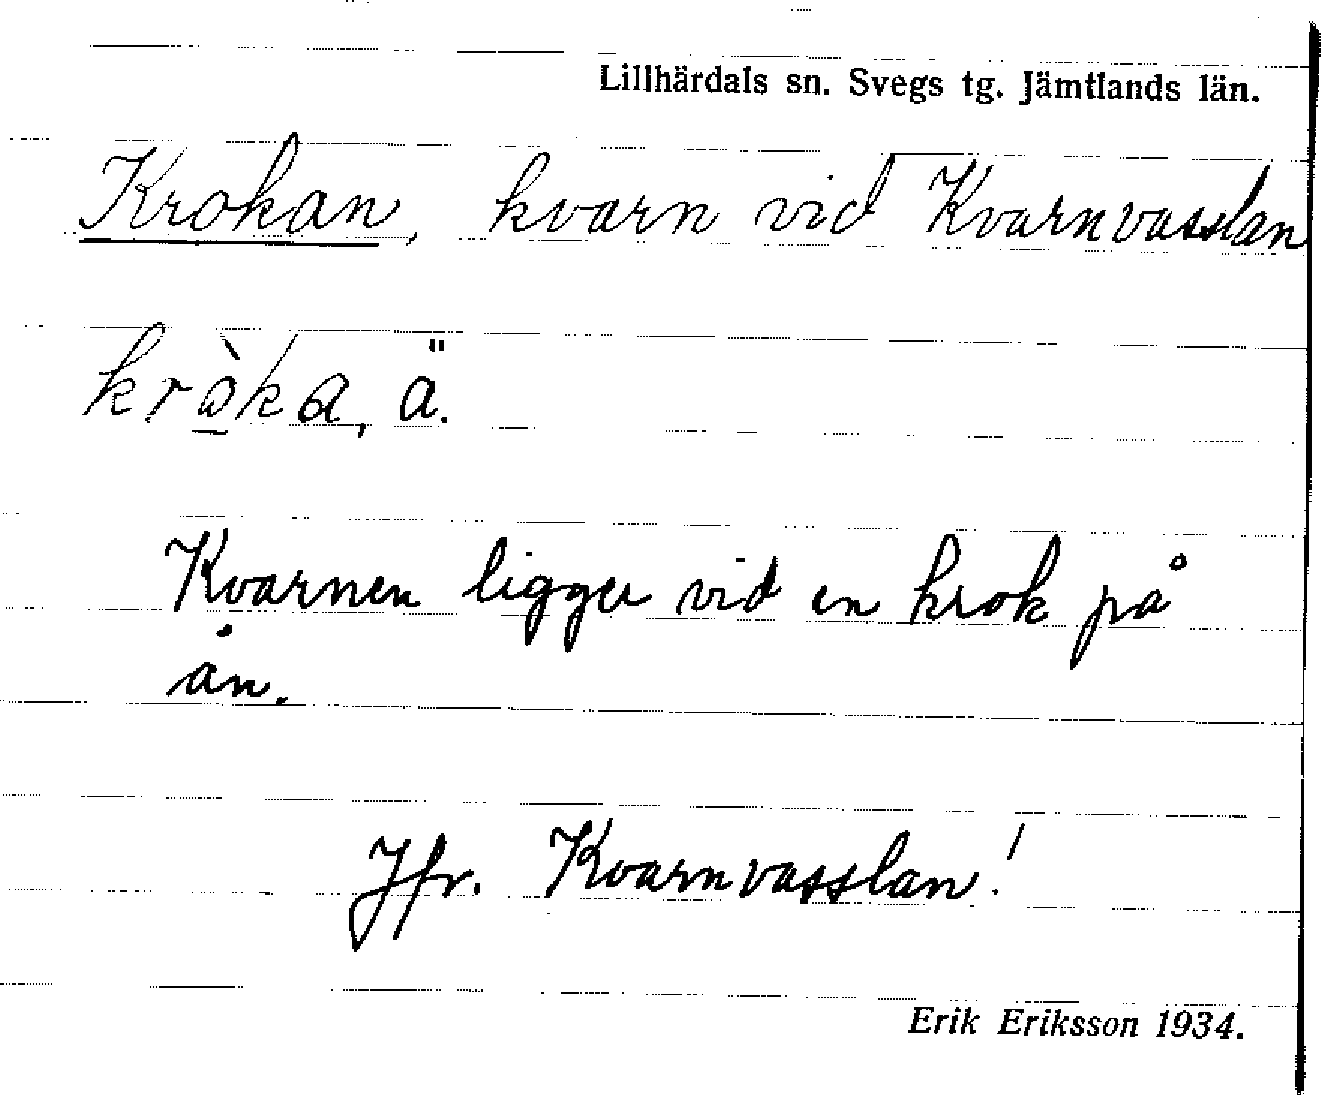 Lillhärdals sn. Svegs tg. Jämtlands län.
Krokan, kvarn vid Kvarnvasslan
kròka, ä.
Kvarnen ligger vid en krok på
ån.
Jfr. Kvarnvasslan!
Erik Eriksson 1934.